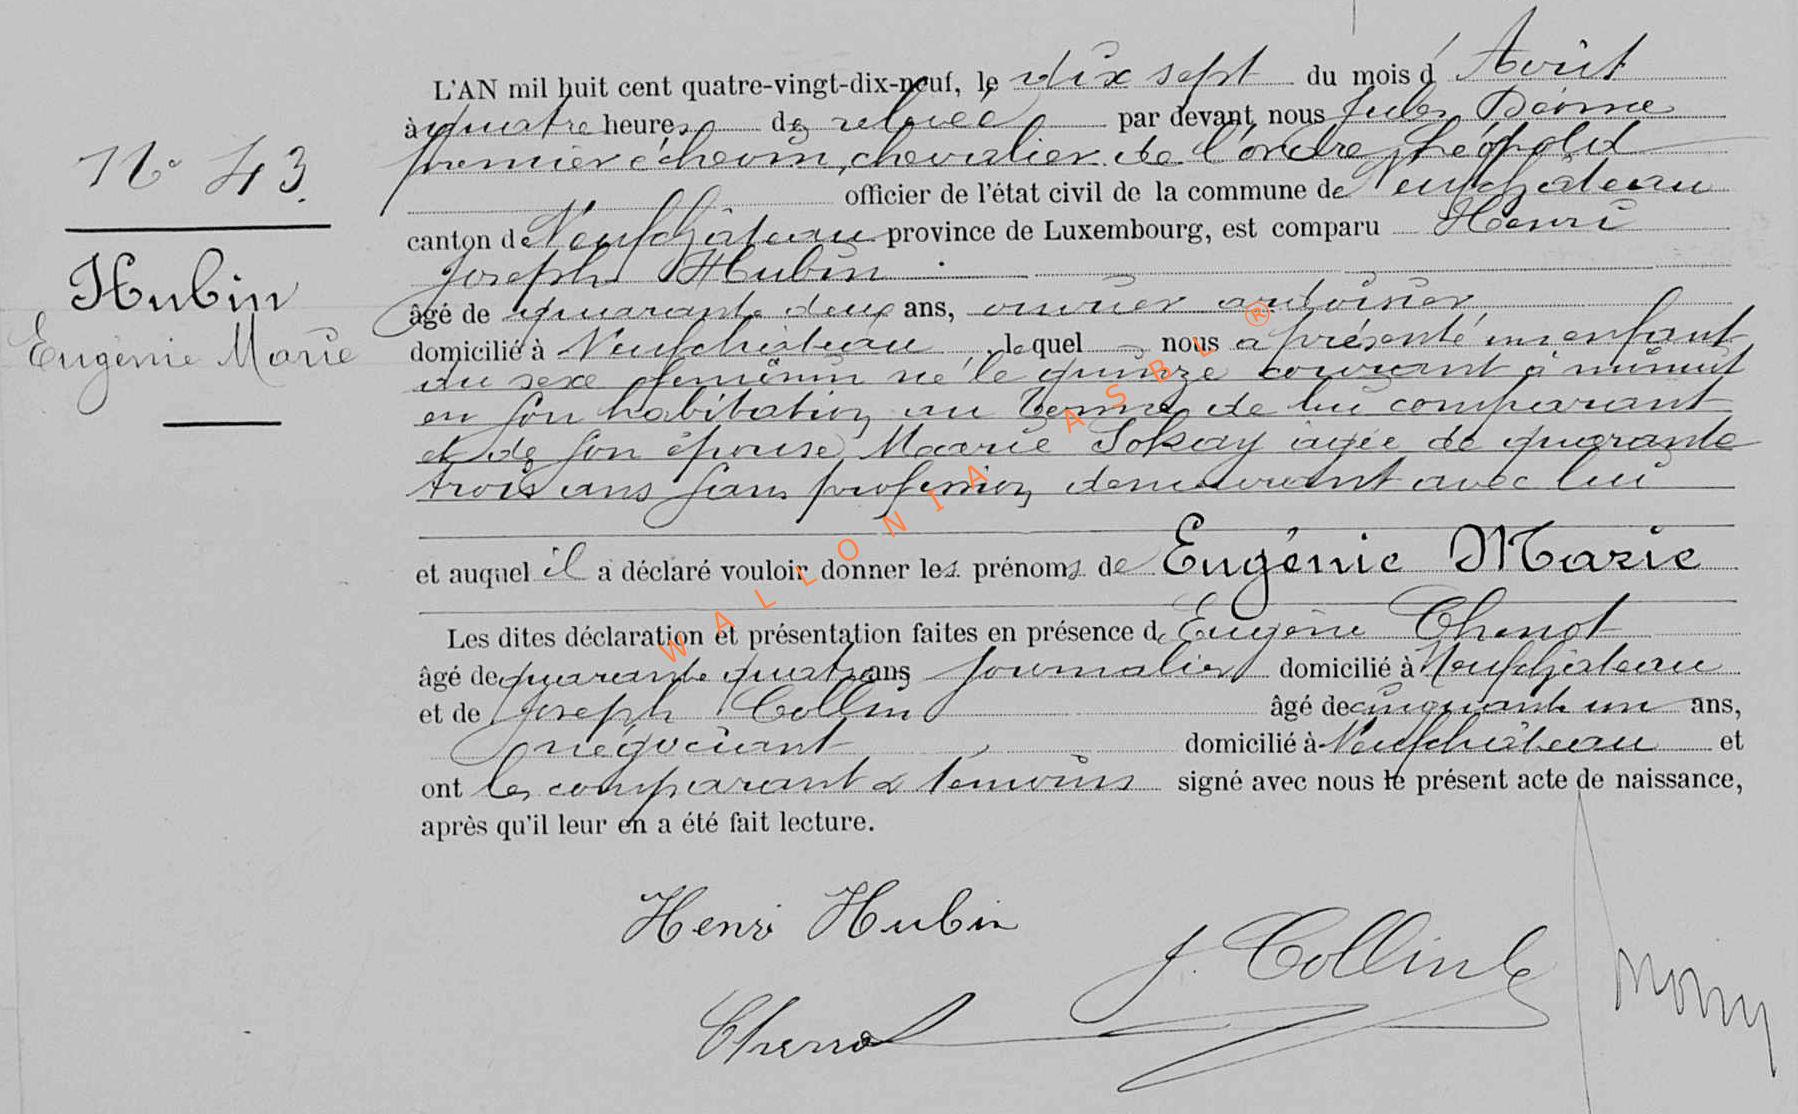 N° 43.
Hubin
Eugénie Marie
L'AN mil huit cent quatre-vingt-dix-neuf, le dix sept du mois d'Août
à quatre heures de relevée par devant nous Jules
premier échevin, chevalier de l'ordre Léopold
officier de l'état civil de la commune de Neufchâteau
canton de Neufchâteau province de Luxembourg, est comparu Henri
Joseph Hubin
âgé de quarante deux ans, ouvrier ardoisier
domicilié à Neufchâteau, lequel nous a présenté un enfant
du sexe féminin né le quinze courant à minuit
en son habitation au Terme de lui comparant
et de son épouse Marie Sokay agée de quarante
trois ans sans profession demeurant avec lui
et auquel il a déclaré vouloir donner les prénoms de Eugénie Marie
Les dites déclaration et présentation faites en présence de Eugène Thenot
âgé de quarante quatre ans journalier domicilié à Neufchâteau
et de Joseph Collin âgé de cinquante un ans,
négociant domicilié à Neufchâteau et
ont les comparant & témoins signé avec nous le présent acte de naissance,
après qu'il leur en a été fait lecture.
Henri Hubin
J. Collin
WALLONIA ASBL ®